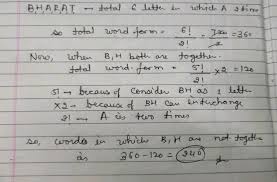 BHARAT → total 6 letter in which A 2 time
so total word form = 6!/2! = 720/2 = 360
Now, when B,H both are together
total word form = 5!/2! × 2 = 120
5! → because of consider BH as 1 letter
×2 → because of BH can interchange
2! → A is two times
So, words in which B,H are not together
is 360 - 120 = 240